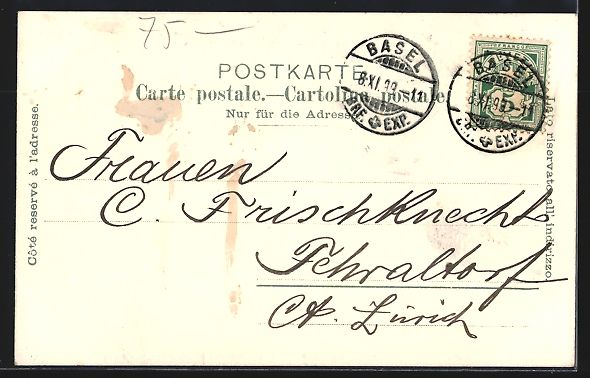 75 —
POSTKARTE.
Carte postale.—Cartolina postale.
Nur für die Adresse.
Côté reservé à l'adresse.
Lato riservato all' indirizzo.
FRANCO
BASEL
8.XI.99.-12
BRF. EXP.
BASEL
8.XI.99.-12
BRF. EXP.
Frauen
C. Frischknecht
Fehraltorf
Ct. Zürich